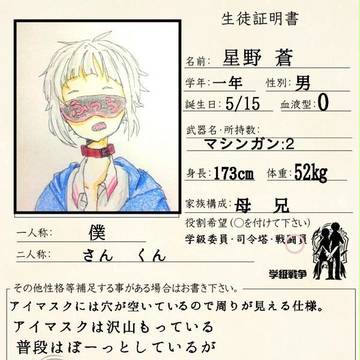 生徒証明書
名前: 星野 蒼
学年: 一年 性別: 男
誕生日: 5/15 血液型: O
武器名・所持数:
マシンガン:2
身長: 173cm 体重: 52kg
家族構成: 母 兄
役割希望(○を付けて下さい)
学級委員・司令塔・戦闘員
一人称: 僕
二人称: さん くん
学級戦争
その他性格等補足する事がある場合はお書き下さい。
アイマスクには穴が空いているので周りが見える仕様。
アイマスクは沢山もっている
普段はぼーっとしているが